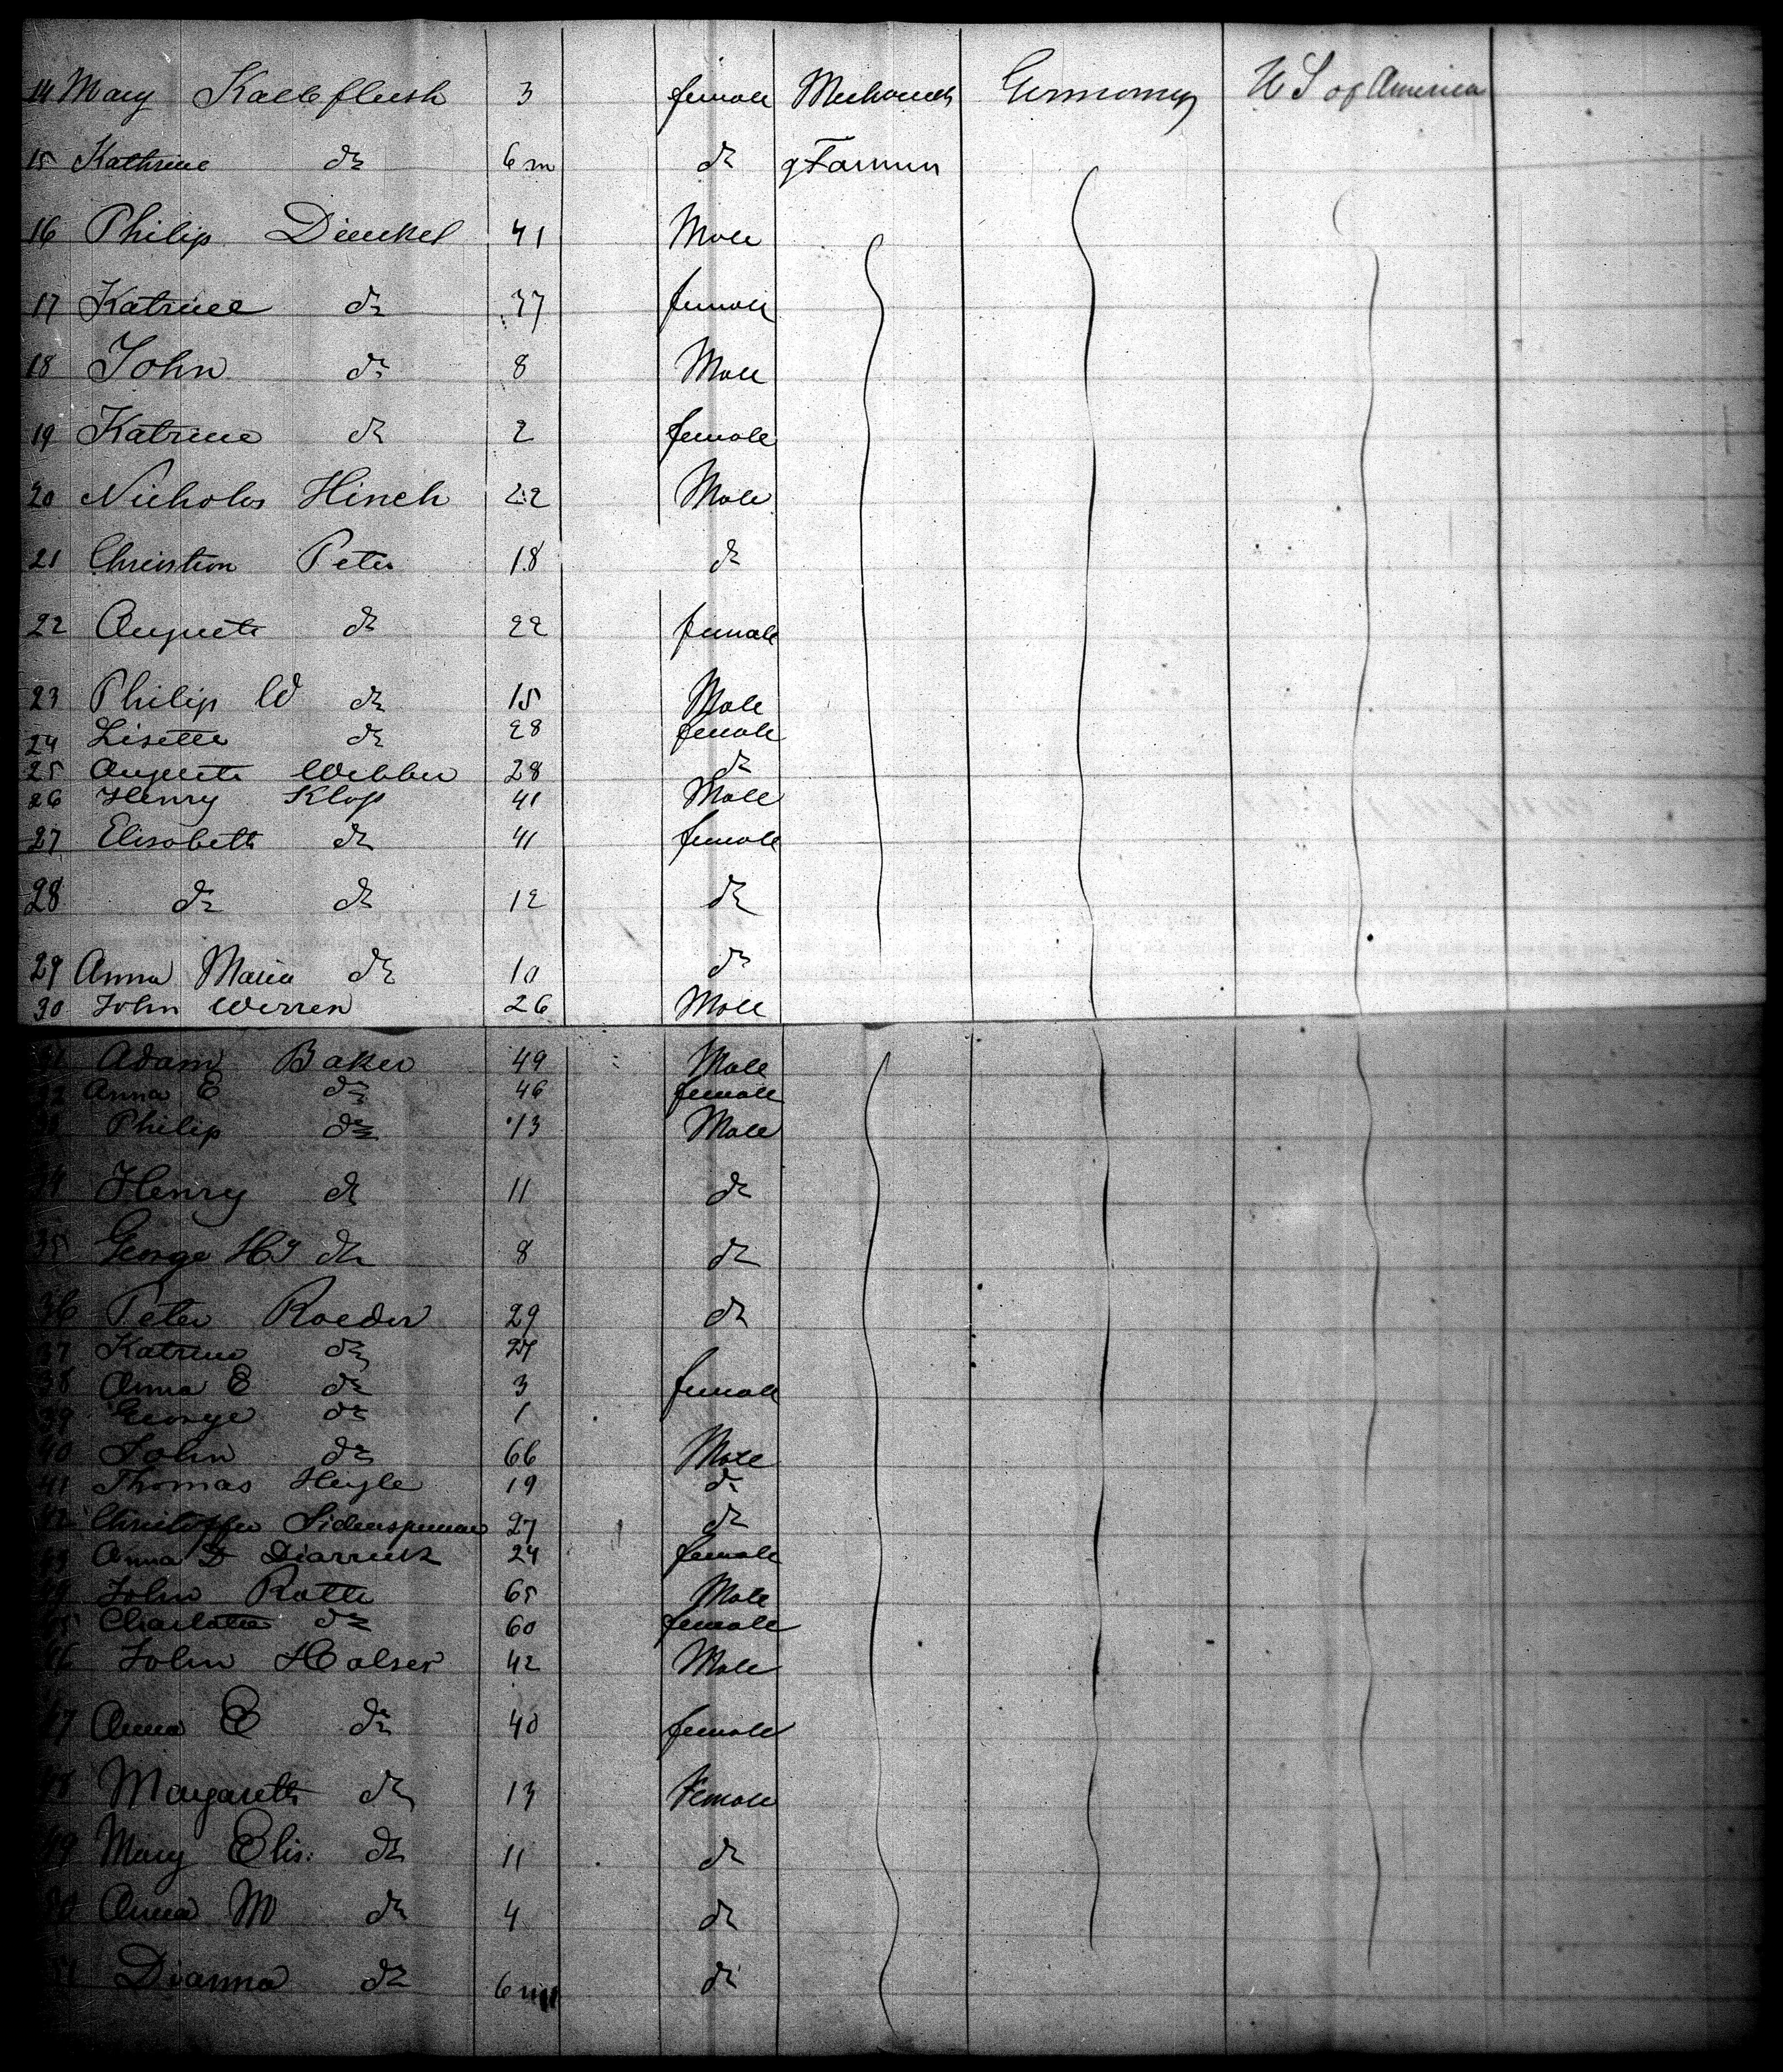 14 Mary Kalbfleish 3 female Mechanich Germany U S of America
15 Kathrine do 6 m do & Farmers
16 Philip Dienkel 41 Male
17 Katrine do 37 female
18 John do 8 Male
19 Katrine do 2 female
20 Nicholas Hinch 22 Male
21 Christian Peter 18 do
22 Auguste do 22 female
23 Philip W do 15 Male
24 Lisette do 28 female
25 Auguste Webber 28 do
26 Henry Klop 41 Male
27 Elisabeth do 41 female
28 do do 12 do
29 Anna Maria do 10 do
30 John Werren 26 Male
31 Adam Baker 49 Male
32 Anna E do 46 female
33 Philip do 13 Male
34 Henry do 11 do
35 George Hy do 8 do
36 Peter Roeder 29 do
37 Katrine do 27
38 Anna E do 3 female
39 George do 1
40 John do 66 Male
41 Thomas Heyle 19 do
42 Christoffer 27 do
43 Anna D 24 female
44 John Rotte 65 Male
45 Charlotte do 60 female
46 John Holser 42 Male
47 Anna E do 40 female
48 Margareth do 13 Female
49 Mary Elis: do 11 do
50 Anna M do 4 do
51 Dianna do 6 m do